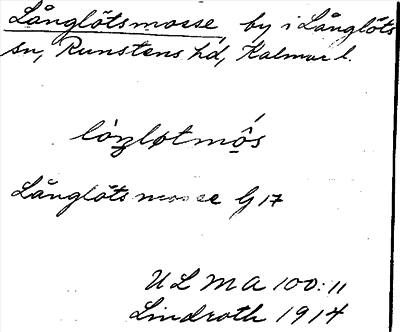 Långlötsmosse, by i Långlöts
sn, Runstens hd, Kalmar l.
lòŋløtmǫ́s
Långlötsmosse G 17
ULMA 100:11
Lindroth 1914